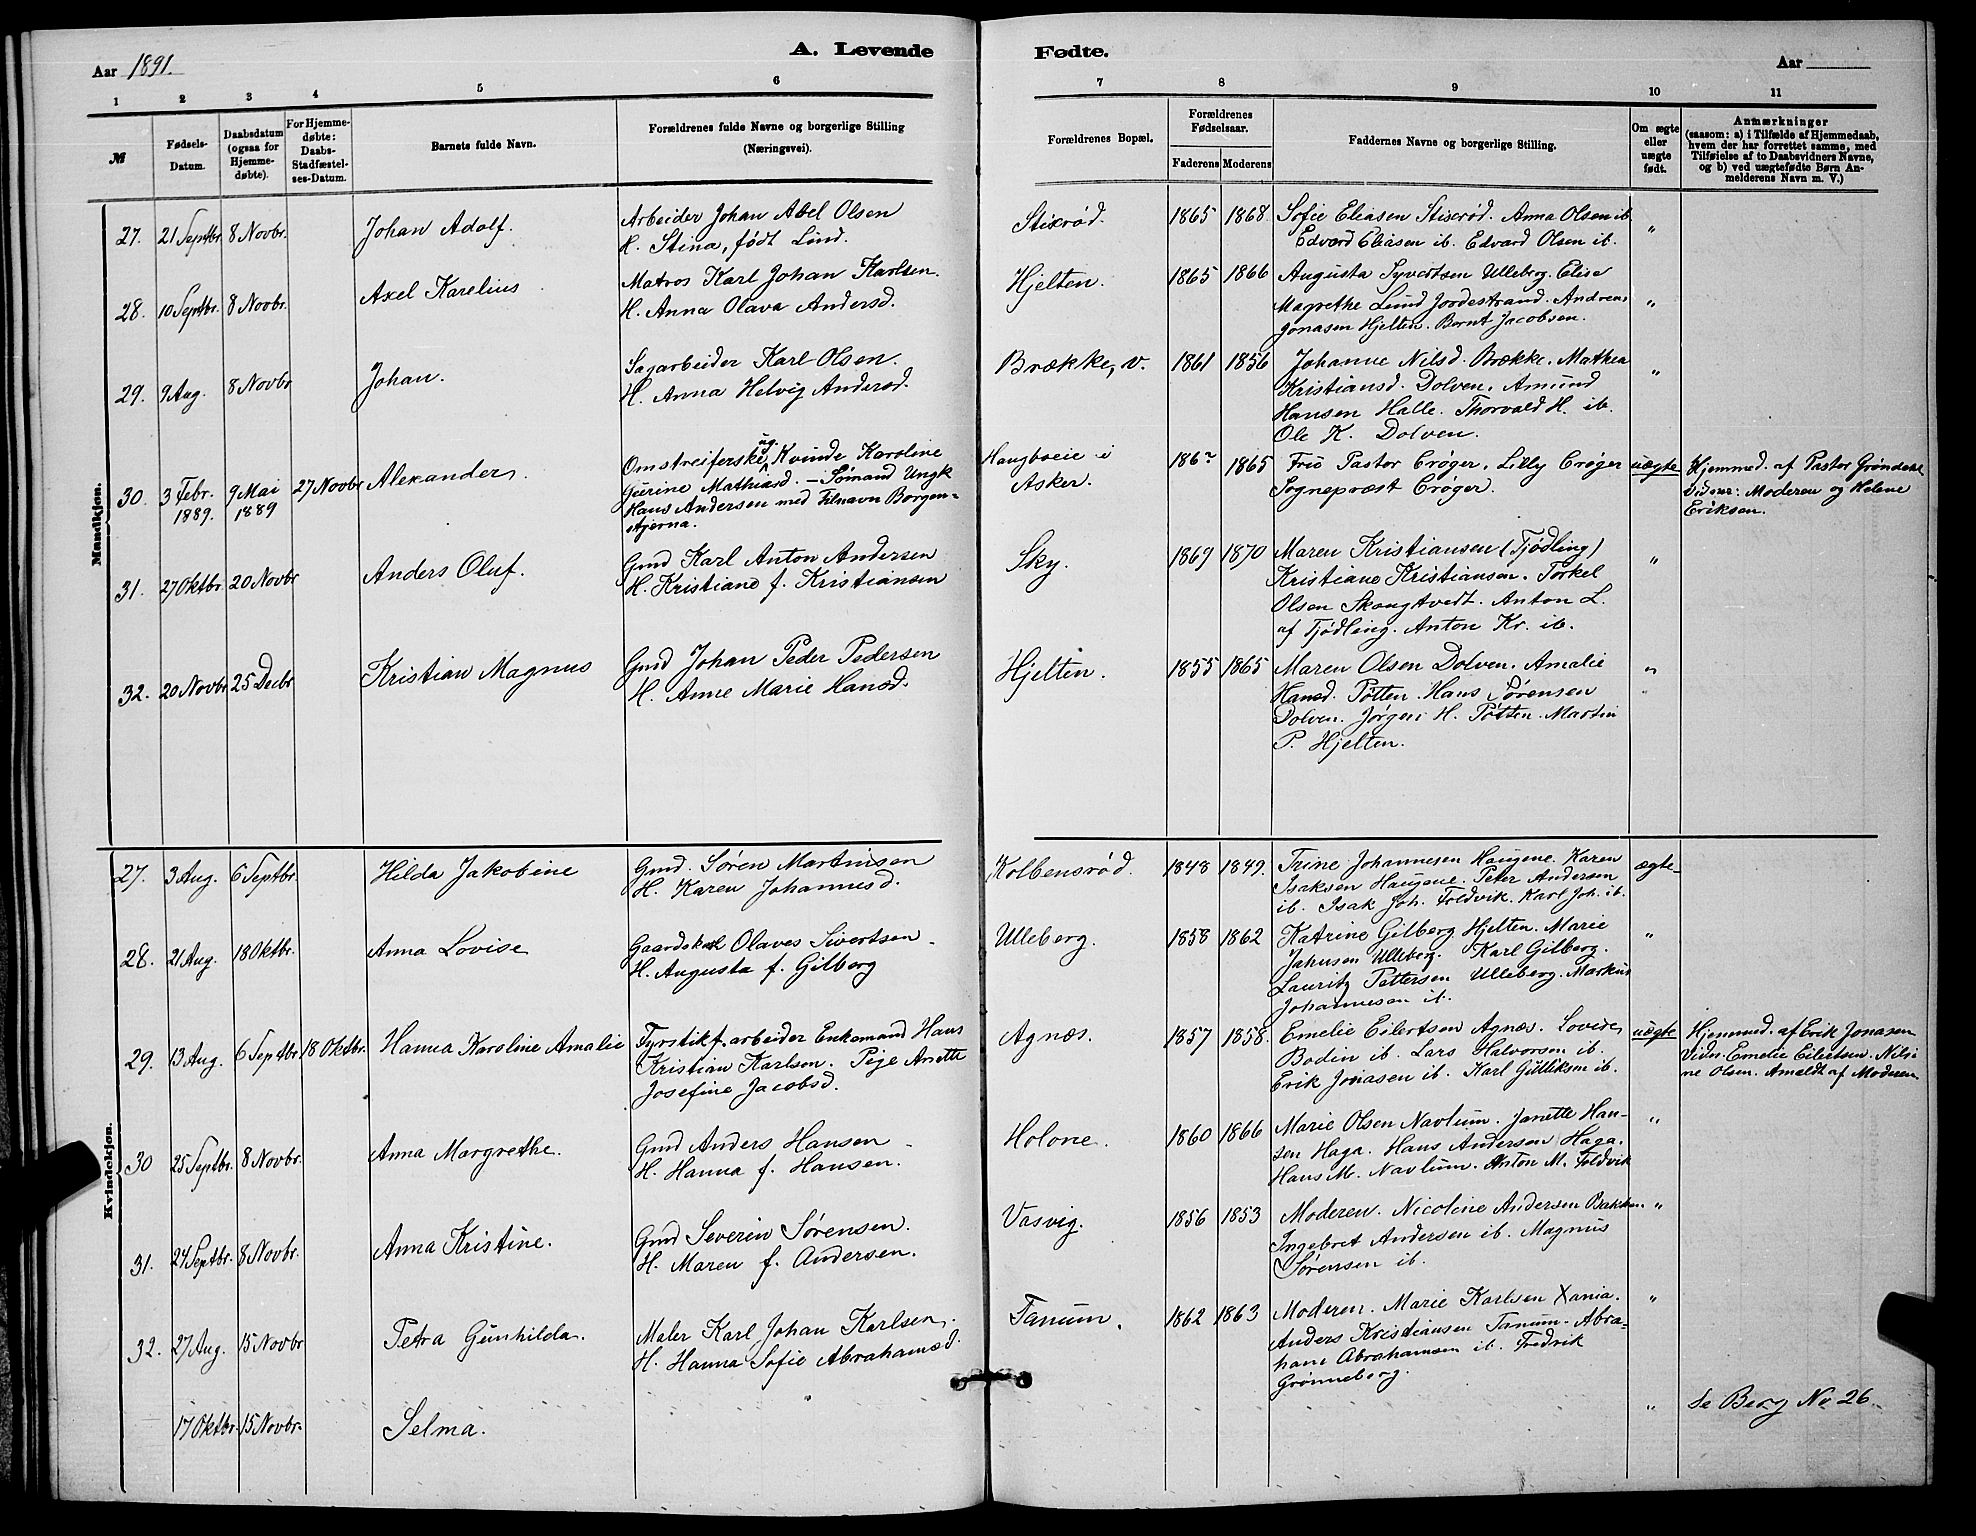 Aar 1891.
A. Levende Fødte.
Aar
1 2 3 4 5 6 7 8 9 10 11
№
Fødsels-Datum.
Daabsdatum (ogsaa for Hjemme-døbte).
For Hjemme-døbte: Daabs-Stadfæstel-ses-Datum.
Barnets fulde Navn.
Forældrenes fulde Navne og borgerlige Stilling (Næringsvei).
Forældrenes Bopæl.
Forældrenes Fødselsaar.
Faderens Moderens
Faddernes Navne og borgerlige Stilling.
Om ægte eller uægte født.
Anmærkninger
(saasom: a) i Tilfælde af Hjemmedaab,
hvem der har forrettet samme, med
Tilføielse af to Daabsvidners Navne,
og b) ved uægtefødte Børn An-
melderens Navn m. V.)
Mandkjøn.
27. 21 Septbr. 8 Novbr. Johan Adolf.
Arbeider Johan Abel Olsen
H. Stina, født Lund.
Stixrød. 1865 1868.
Sofie Eliasen Stixrød. Anna Olsen ib.
Edvard Eliasen ib. Edvard Olsen ib.
"
28. 10 Septbr. 8 Novbr. Axel Karelius
Matros Karl Johan Karlsen.
H. Anna Olava Andersd.
Hjelten. 1865 1866
Augusta Syvertsen Ulleberg. Elise
Magrethe Lund Jordestrand. Andreas
Jonasen Hjelten. Bernt Jacobsen.
"
29. 9 Aug. 8 Novbr Johan.
Sagarbeider Karl Olsen.
H. Anna Helvig Andersd.
Brække, v. 1861 1856
Johanne Nilsd. Brække. Mathea
Kristiansd. Dolven. Amund
Hansen Halle. Thorvald H. ib.
Ole K. Dolven.
"
30. 3 Febr. 1889. 9 Mai 1889 27 Novbr Alexander.
Omstreiferske, ug. Kvinde Karoline
Gurine Mathiasd. – Sømand Ungk
Hans Andersen med Tilnavn Borgen-
stjerna.
Haugboeie i
Asker.
1865
Fru Pastor Crøger. Lilly Crøger
Sognepræst Crøger.
uægte
Hjemmed. af Pastor Grøndahl
Vidner: Moderen og Helene
Eriksen.
31. 27 Oktbr. 20 Novbr Anders Oluf.
Gmd Karl Anton Andersen
H. Kristiane f. Kristiansen
Sky. 1869 1870
Maren Kristiansen (Tjødling)
Kristiane Kristiansen. Torkel
Olsen Skaugtvedt. Anton L.
af Tjødling. Anton Kr. ib.
"
32. 20 Novbr 25 Decbr Kristian Magnus
Gmd Johan Peder Pedersen
H. Anne Marie Hansd.
Hjelten. 1855 1865
Maren Olsen Dolven. Amalie
Hansd. Pøtten. Hans Sørensen
Dolven. Jørgen H. Pøtten. Martin
P. Hjelten.
"
Kvindekjøn.
27. 3 Aug. 6 Septbr. Hilda Jakobine
Gmd. Søren Martinsen
H. Karen Johannesd.
Kolbensrød. 1848 1849.
Trine Johannesen Haugene. Karen
Isaksen Haugene. Peter Andersen
ib. Isak Joh. Foldvik. Karl Joh. ib.
ægte
28. 21 Aug. 18 Oktbr. Anna Lovise
Gaardskarl Olaves Sivertsen.
H. Augusta f. Gilberg
Ulleberg. 1858 1862
Katrine Gilberg Hjelten. Marie
Jahnsen Ulleberg. Karl Gilberg.
Lauritz Pettersen Ulleberg. Markus
Johannesen ib.
"
29. 13 Aug. 6 Septbr. 18 Oktbr. Hanna Karoline Amalie
Fyrstikf. arbeider Enkemand Hans
Kristian Karlsen. Pige Anette
Josefine Jacobsd.
Agnæs. 1857 1858.
Emelie Eilertsen Agnæs. Lovise
Bodin ib. Lars Halvorsen ib.
Erik Jonasen ib. Karl Gulliksen ib.
uægte
Hjemmed. af Erik Jonasen
Vidn. Emelie Eilertsen. Nilsi-
ne Olsen. Anmeldt af Moderen
30 25 Septbr. 8 Novbr. Anna Margrethe.
Gmd Anders Hansen
H. Hanna f. Hansen.
Holone. 1860 1866
Marie Olsen Navlum. Janette Han-
sen Haga. Hans Andersen Haga.
Hans M. Navlum. Anton M. Foldvik
"
31. 24 Septbr. 8 Novbr. Anna Kristine.
Gmd Severin Sørensen.
H. Maren f. Andersen.
Vasvig. 1856 1853
Moderen. Nicoline Andersen Bakken
Ingebret Andersen ib. Magnus
Sørensen ib.
"
32. 27 Aug. 15 Novbr Petra Gunhilda.
Maler Karl Johan Karlsen.
H. Hanna Sofie Abrahamsd.
Tanum. 1862 1863
Moderen. Marie Karlsen Xania.
Anders Kristiansen Tanum. Abra-
ham Abrahamsen ib. Fredrik
Grønneberg.
"
17 Oktbr. 15 Novbr. Selma. " Se Berg No 26.